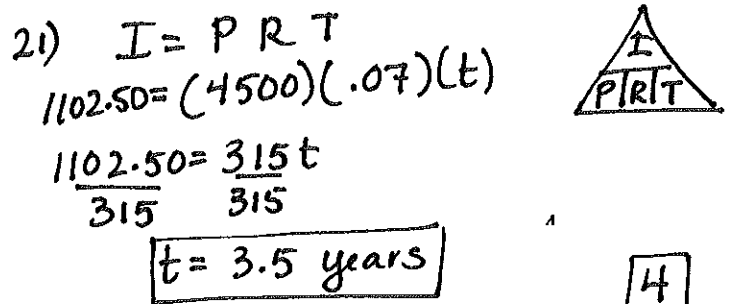 21) I = P R T
1102.50 = (4500)(.07)(t)
1102.50 = 315 t
315 315
t = 3.5 years
I
P R T
4